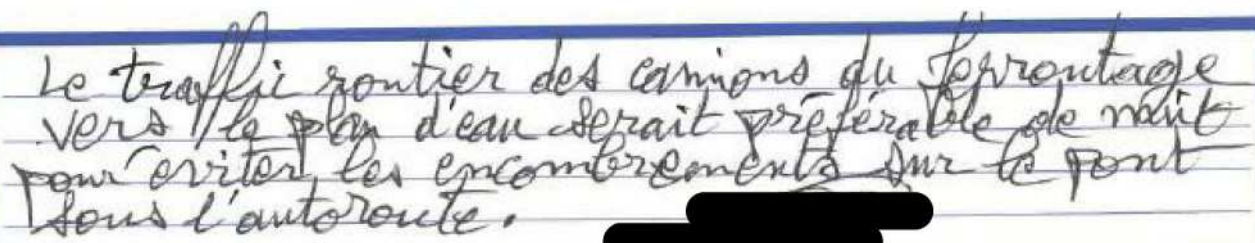 Le traffic routier des camions du ferroutage
vers le plan d'eau serait préférable de nuit
pour éviter les encombrements sur le pont
sous l'autoroute.